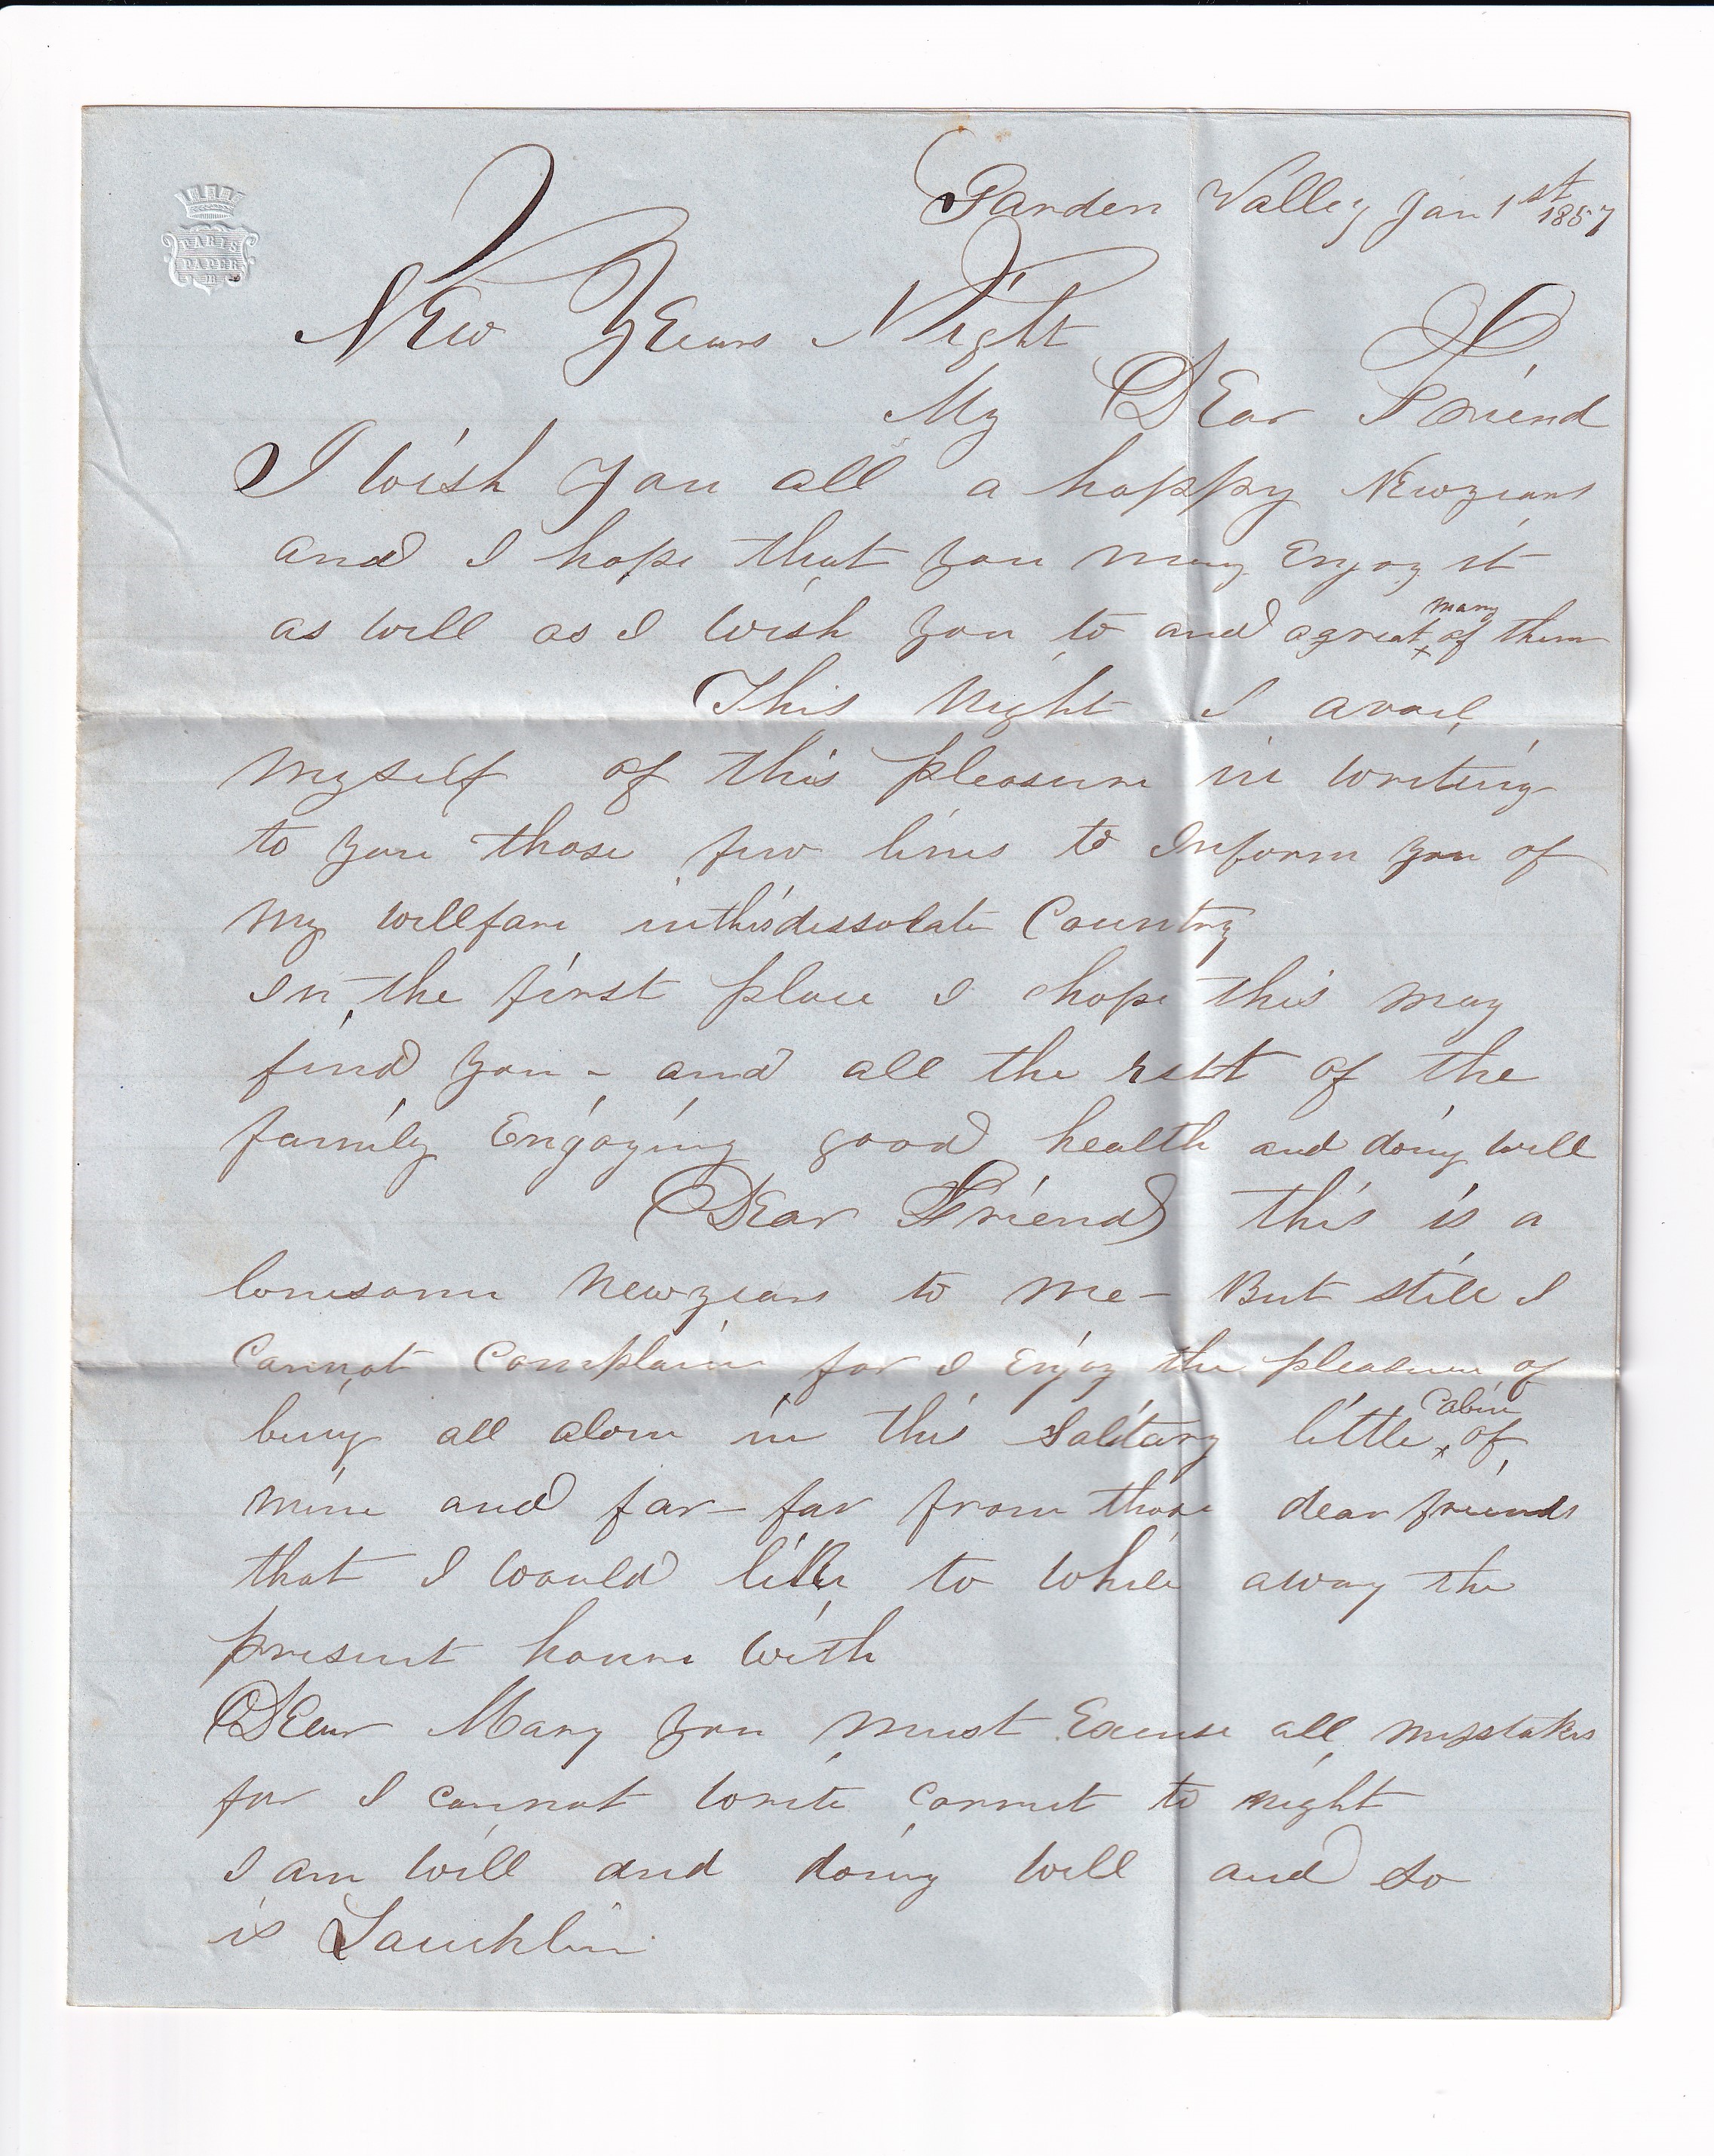 PARIS
PAPER
Garden Valley Jan 1st 1857
New Years Night
My Dear Friend
I wish you all a happy Newyears
and I hope that you may Enjoy it
as well as I wish you to and agreat many of them
This Night I avail
myself of this pleasure in writing
to you those few lines to Inform you of
my wellfare inthisdissolate Country
In the first place I hope this may
find you - and all the rest of the
family Enjoying good health and doing well
Dear Friend this is a
lonesome Newyears to me - But still I
Cannot Complain for I Enjoy the pleasure of
being all alone in this Solitary little Cabin of
mine and far - far from those dear friends
that I would like to while away the
present houre with
Dear Mary you must Excuse all misstakes
for I cannot write correct to night
I am well and doing well and So
is Lauchlin